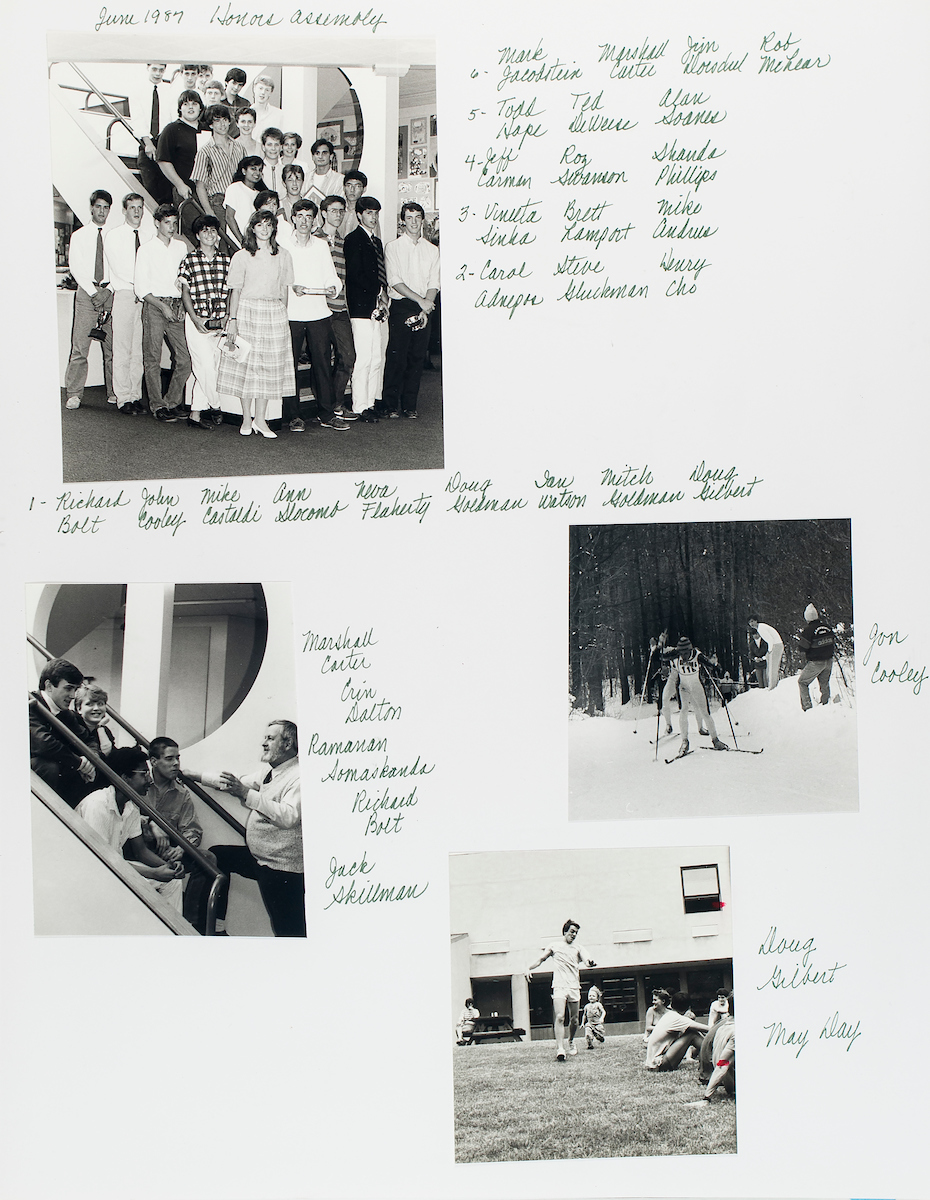 June 1987 Honors Assembly
Mark Marshall Jim Rob
6- Jacobstein Carter McLear
5- Todd Ted Alan
Hope DeWeese Soanes
4- Jeff Roz Shanda
Carman Swanson Phillips
3- Vineeta Brett Mike
Sinha Lamport Andres
2- Carol Steve Henry
Adnepos Gluckman Cho
1- Richard John Mike Ann Neva Doug Ian Mitch Doug
Bolt Cooley Castaldi Slocomb Flaherty Goldman Watson Goldman Gilbert
Marshall
Carter
Erin
Dalton
Ramanan
Somaskanda
Richard
Bolt
Jack
Skillman
Jon
Cooley
118
Doug
Gilbert
May Day